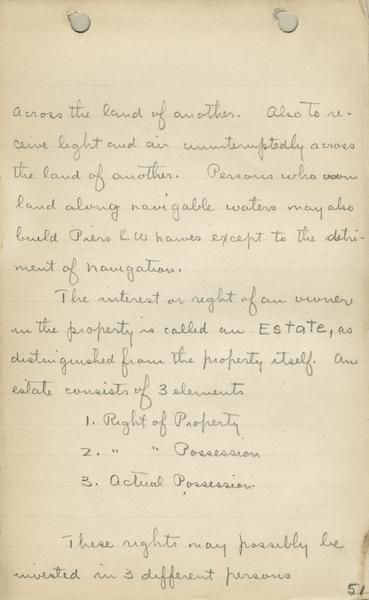 across the land of another. Also to re-
ceive light and air uninterruptedly across
the land of another. Persons who own
land along navigable waters may also
build Piers & Whawes except to the detri-
ment of navigation.
The interest or right of an owner
in the property is called an Estate, as
distinguished from the property itself. An
estate consists of 3 elements
1. Right of Property
2. " " Possession
3. Actual Possession.
These rights may possibly be
invested in 3 different persons
51